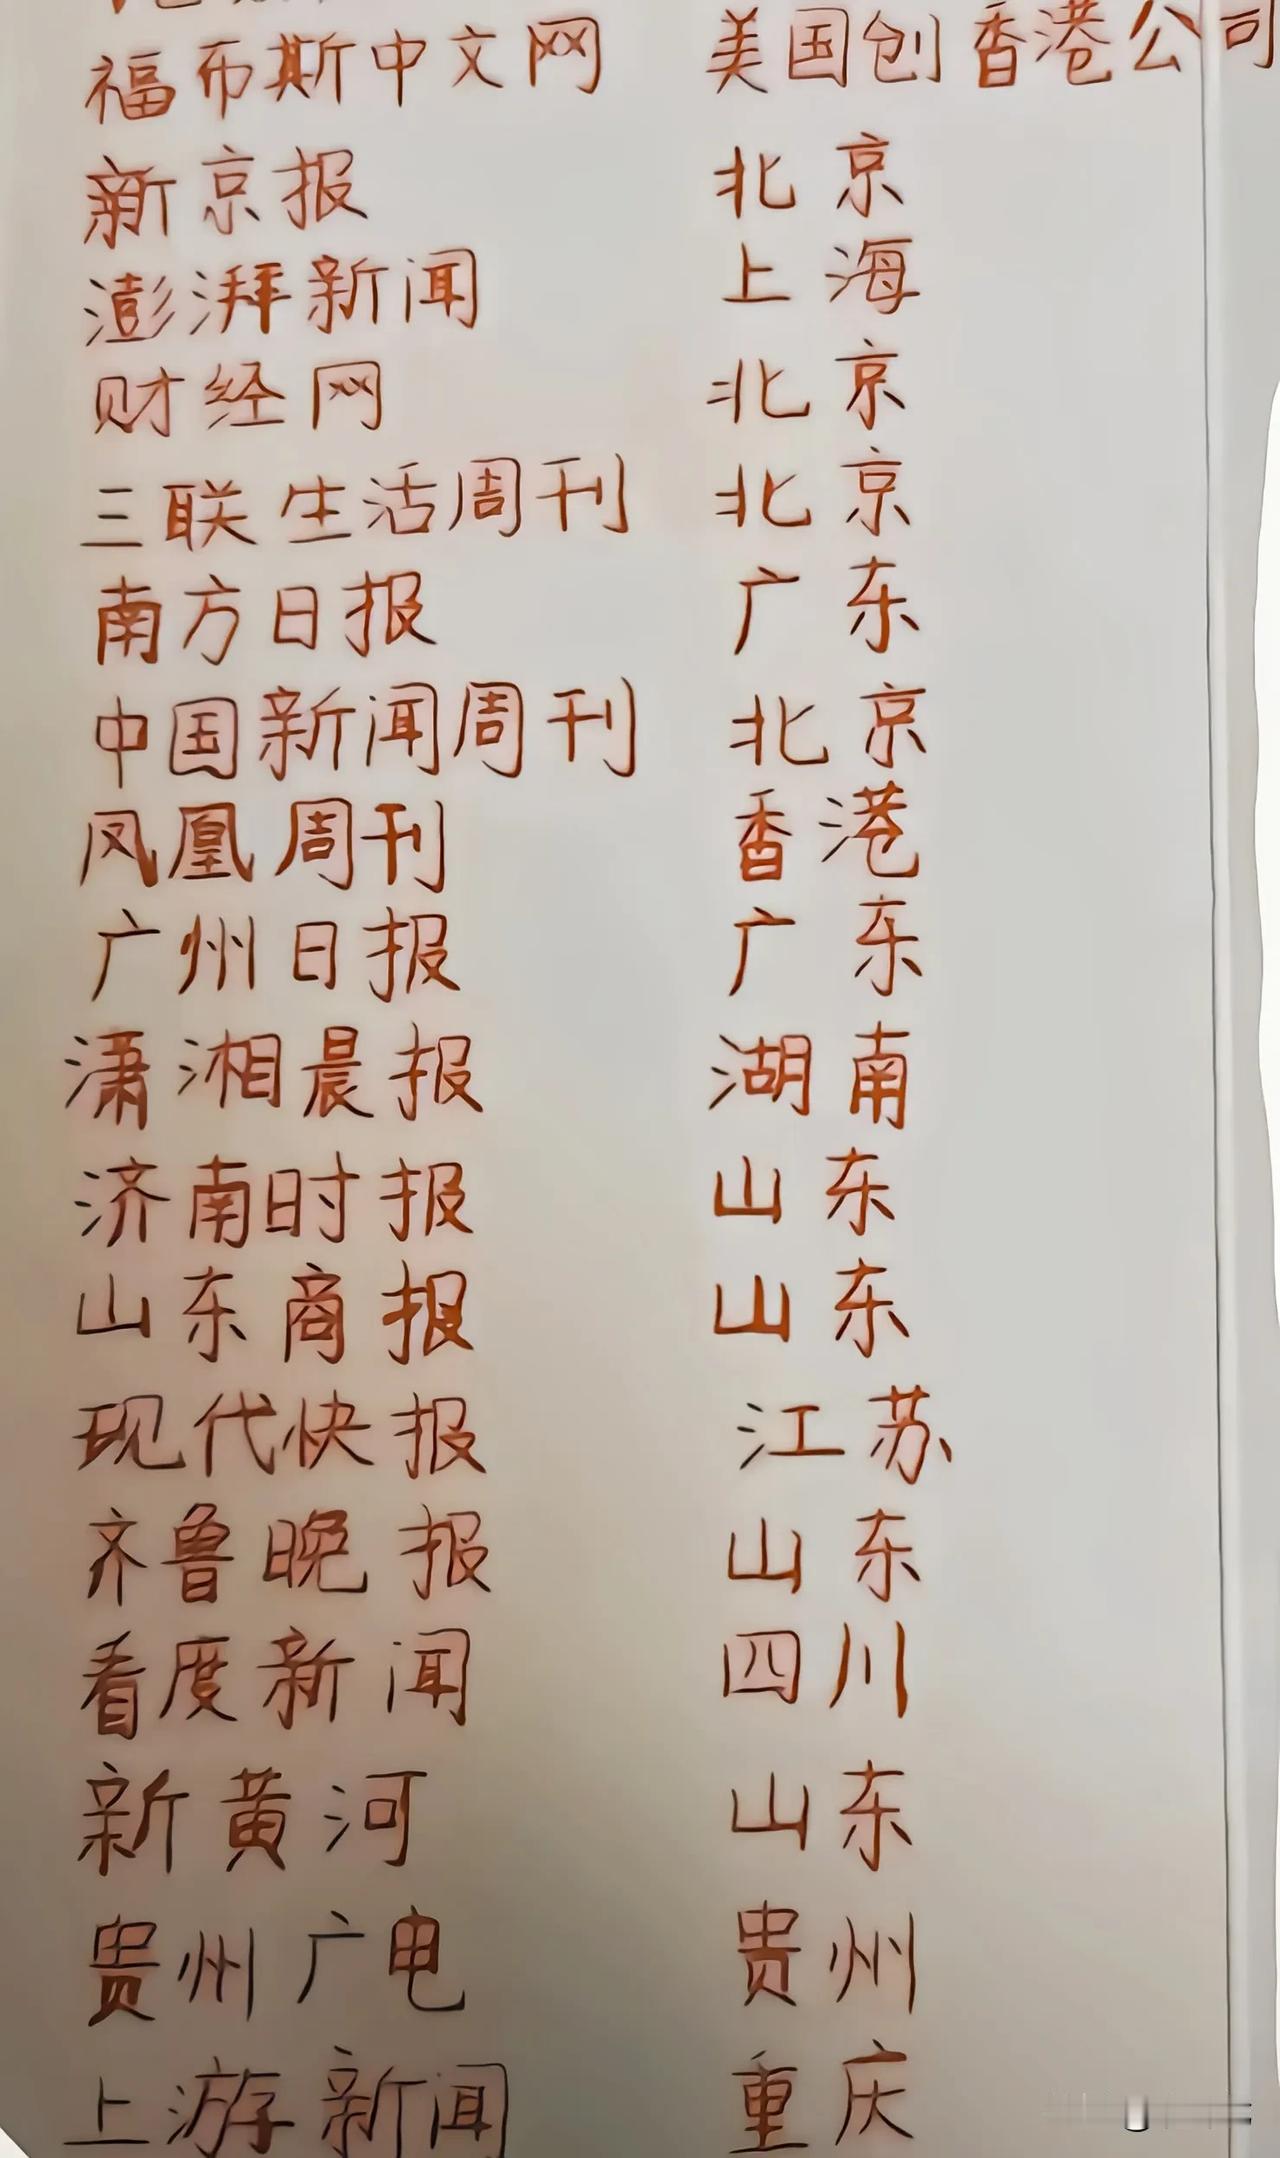 福布斯中文网 美国创香港公司
新京报 北京
澎湃新闻 上海
财经网 北京
三联生活周刊 北京
南方日报 广东
中国新闻周刊 北京
凤凰周刊 香港
广州日报 广东
潇湘晨报 湖南
济南时报 山东
山东商报 山东
现代快报 江苏
齐鲁晚报 山东
看度新闻 四川
新黄河 山东
贵州广电 贵州
上游新闻 重庆